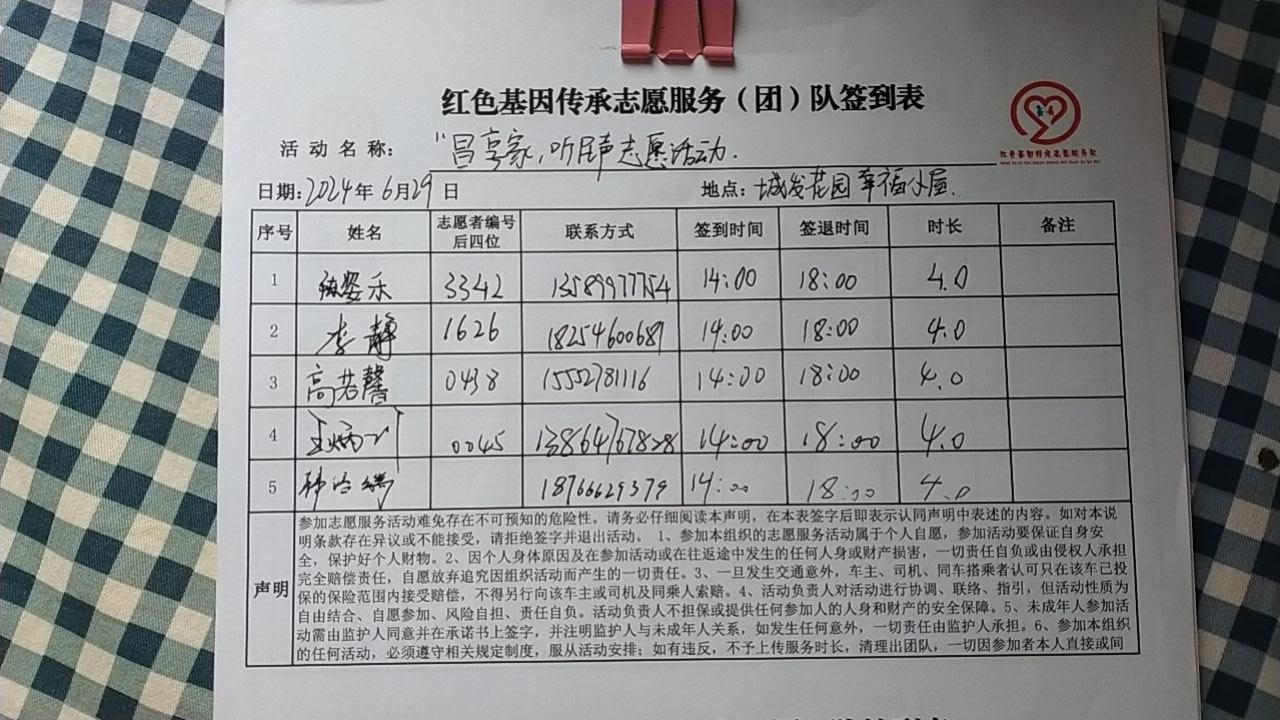 红色基因传承志愿服务（团）队签到表
红色基因传承志愿服务队
活动名称：“昌享家，听居声志愿活动.
日期：2024年6月29日 地点：城发花园幸福小屋.
序号 姓名 志愿者编号后四位 联系方式 签到时间 签退时间 时长 备注
1 姿禾 3342 13589977754 14:00 18:00 4.0
2 李静 1626 18254600681 14:00 18:00 4.0
3 高若馨 0438 15552781116 14:00 18:00 4.0
4 0045 13864767828 14:00 18:00 4.0
5 韩 18766629379 14:00 18:00 4.0
声明
参加志愿服务活动难免存在不可预知的危险性。请务必仔细阅读本声明，在本表签字后即表示认同声明中表述的内容。如对本说
明条款存在异议或不能接受，请拒绝签字并退出活动。 1、参加本组织的志愿服务活动属于个人自愿，参加活动要保证自身安
全，保护好个人财物。2、因个人身体原因及在参加活动或在往返途中发生的任何人身或财产损害，一切责任自负或由侵权人承担
完全赔偿责任，自愿放弃追究因组织活动而产生的一切责任。3、一旦发生交通意外，车主、司机、同车搭乘者认可只在该车已投
保的保险范围内接受赔偿，不得另行向该车主或司机及同乘人索赔。4、活动负责人对活动进行协调、联络、指引，但活动性质为
自由结合、自愿参加、风险自担、责任自负。活动负责人不担保或提供任何参加人的人身和财产的安全保障。5、未成年人参加活
动需由监护人同意并在承诺书上签字，并注明监护人与未成年人关系，如发生任何意外，一切责任由监护人承担。6、参加本组织
的任何活动，必须遵守相关规定制度，服从活动安排；如有违反，不予上传服务时长，清理出团队，一切因参加者本人直接或间